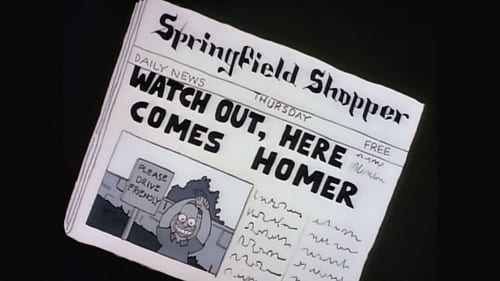 Springfield Shopper
DAILY NEWS THURSDAY FREE
WATCH OUT, HERE
COMES HOMER
PLEASE
DRIVE
FRIENDLY